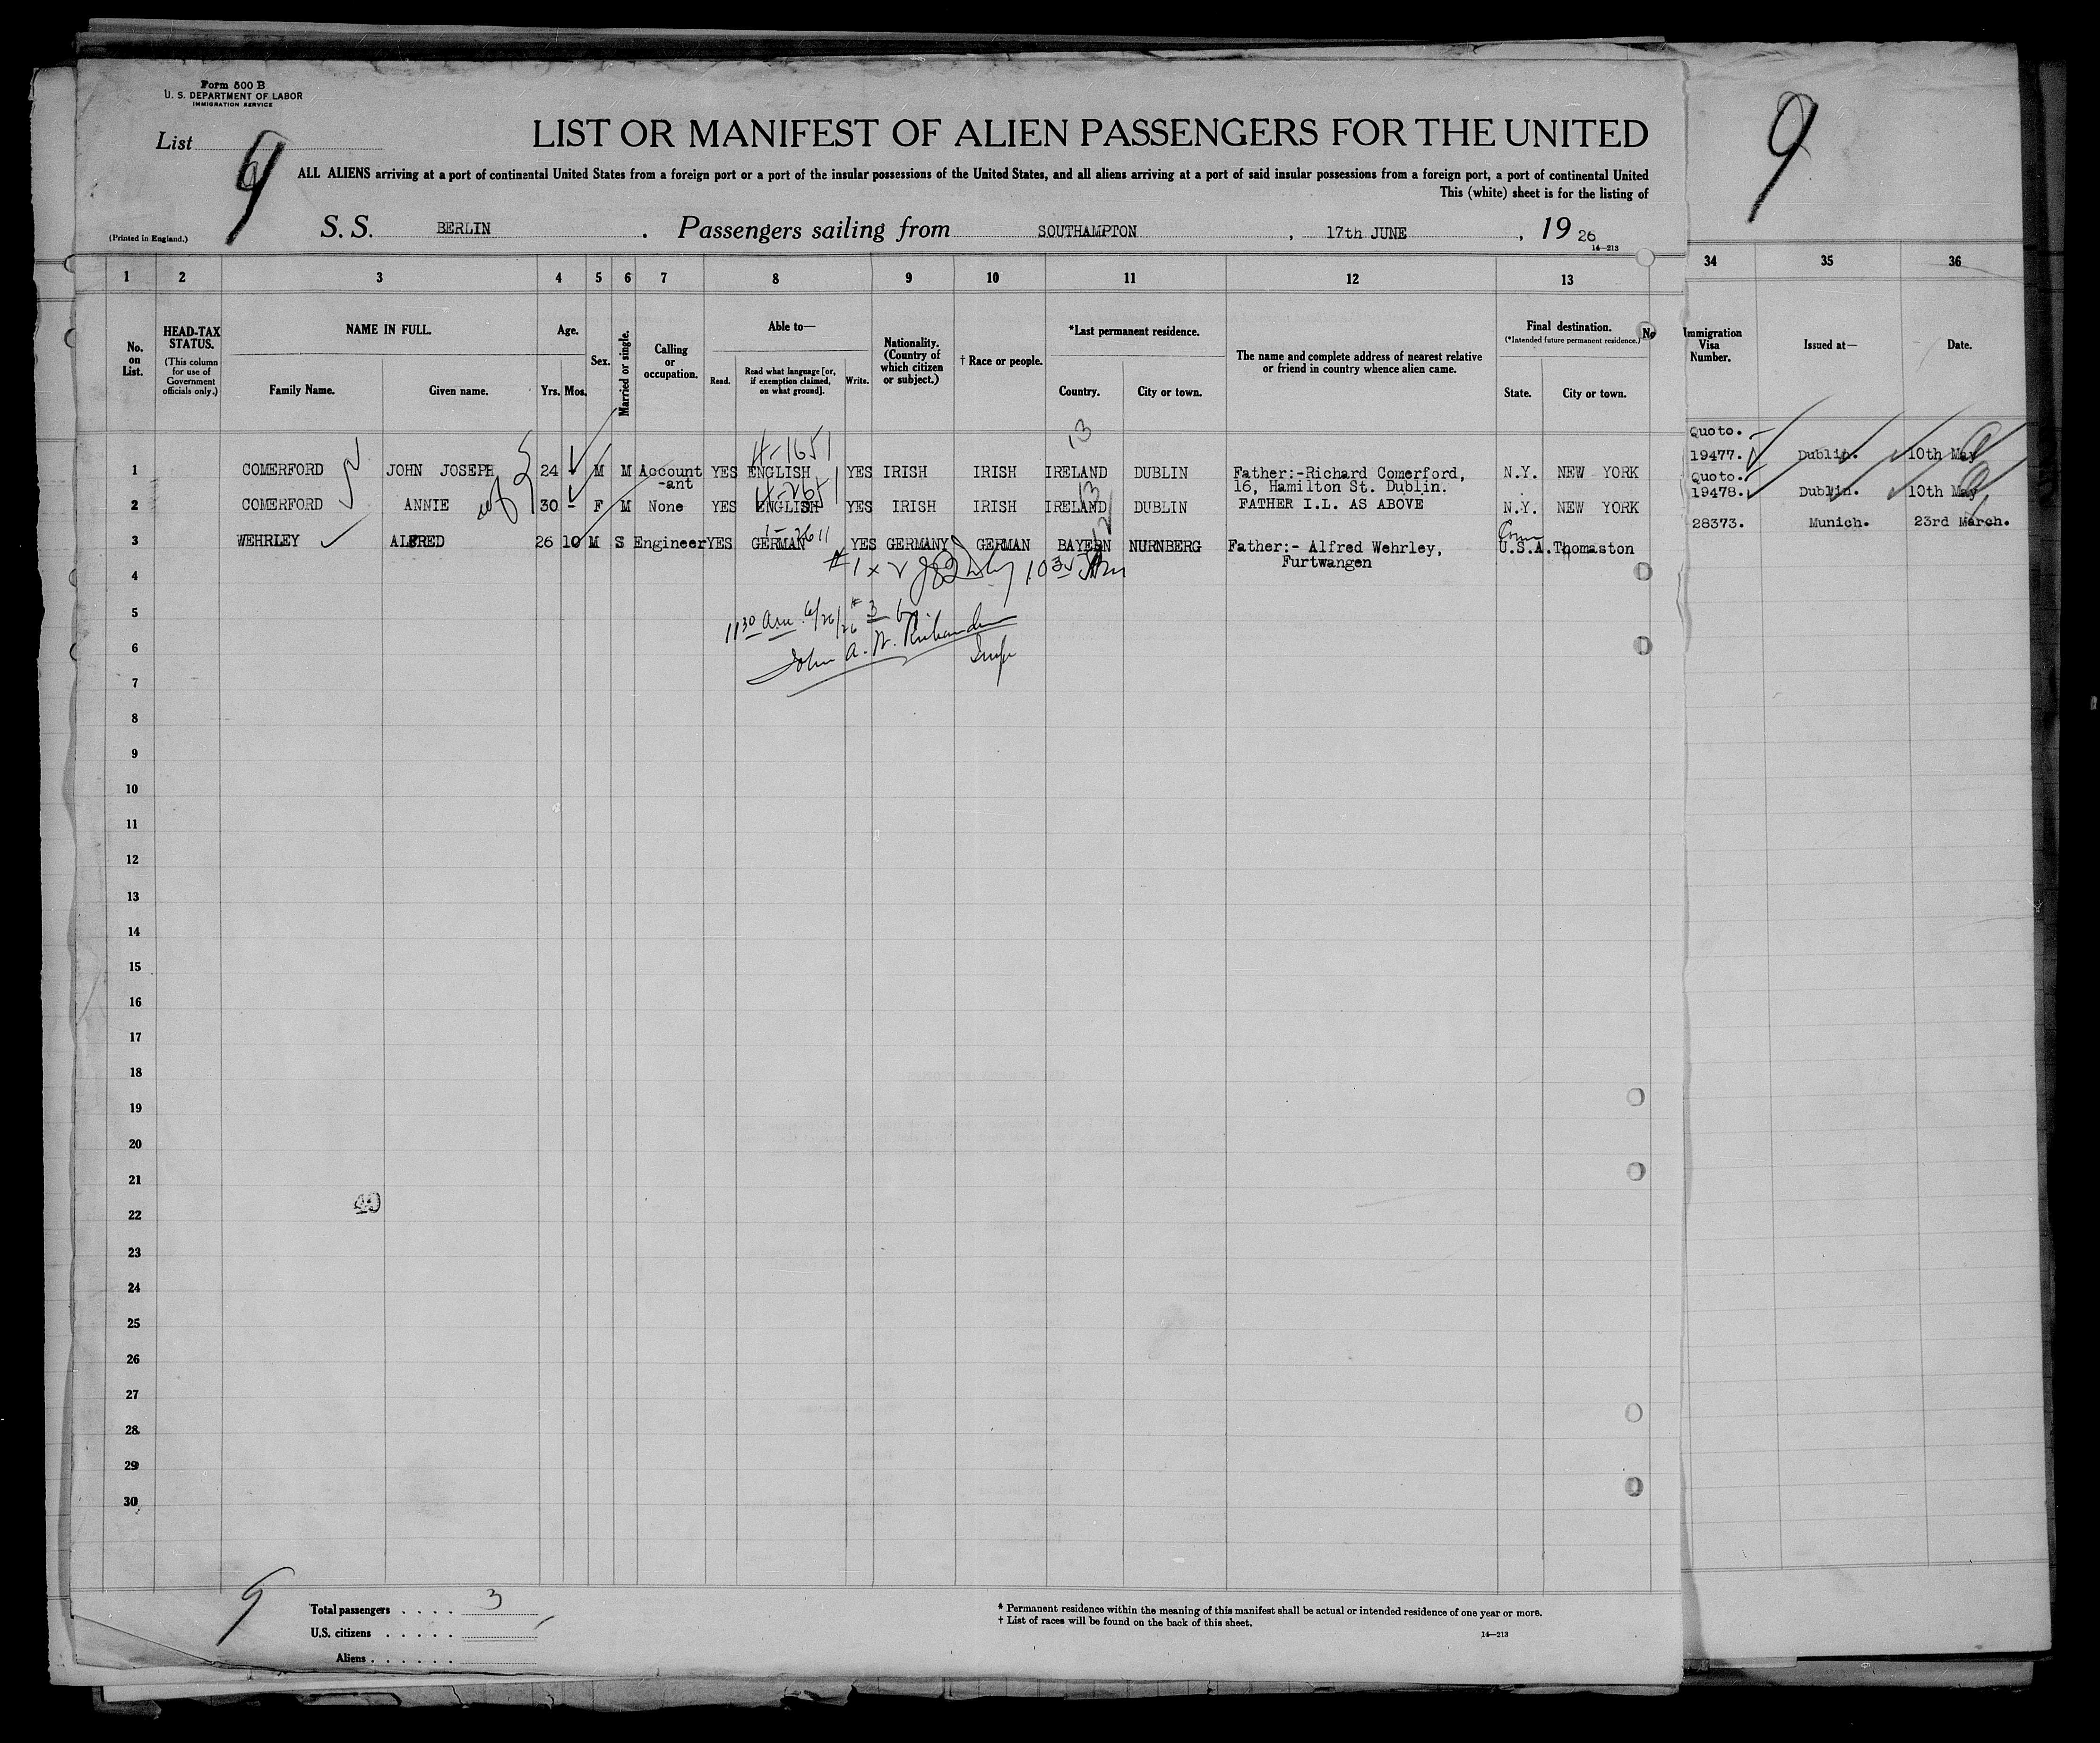 Form 500 B
U. S. DEPARTMENT OF LABOR
IMMIGRATION SERVICE
List
9
LIST OR MANIFEST OF ALIEN PASSENGERS FOR THE UNITED
9
ALL ALIENS arriving at a port of continental United States from a foreign port or a port of the insular possessions of the United States, and all aliens arriving at a port of said insular possessions from a foreign port, a port of continental United
This (white) sheet is for the listing of
(Printed in England.)
S. S. BERLIN . Passengers sailing from SOUTHAMPTON , 17th JUNE , 19 26
14—213
1 2 3 4 5 6 7 8 9 10 11 12 13 34 35 36
No. on List.
HEAD-TAX STATUS.
(This column for use of Government officials only.)
NAME IN FULL.
Family Name. Given name.
Age.
Yrs. Mos.
Sex.
Married or single.
Calling or occupation.
Able to—
Read.
Read what language [or, if exemption claimed, on what ground].
Write.
Nationality. (Country of which citizen or subject.)
† Race or people.
*Last permanent residence.
Country. City or town.
The name and complete address of nearest relative or friend in country whence alien came.
Final destination.
(*Intended future permanent residence.)
State. City or town.
No
Immigration Visa Number.
Issued at—
Date.
13
4-1651
Quoto. -
1 COMERFORD JOHN JOSEPH 24 - M M Account-ant YES ENGLISH YES IRISH IRISH IRELAND DUBLIN Father:-Richard Comerford, 16, Hamilton St. Dublin. N.Y. NEW YORK 19477. Dublin. 10th May
4-2651
13
Quoto.
2 COMERFORD ANNIE wf 30 - F M None YES ENGLISH YES IRISH IRISH IRELAND DUBLIN FATHER I.L. AS ABOVE N.Y. NEW YORK 19478. Dublin. 10th May
1-2611
Conn
3 WEHRLEY ALFRED 26 10 M S Engineer YES GERMAN YES GERMANY GERMAN BAYERN NURNBERG Father:- Alfred Wehrley, Furtwangen U.S.A. Thomaston 28373. Munich. 23rd March.
4
5
11 30 am 6/26/26 # 3 by
6
John A. W. Richardson
Insp
7
8
9
10
11
12
13
14
15
16
17
18
19
20
21
49
22
23
24
25
26
27
28
29
30
9
Total passengers . . . . 3
U.S. citizens . . . . .
Aliens . . . . . .
* Permanent residence within the meaning of this manifest shall be actual or intended residence of one year or more.
† List of races will be found on the back of this sheet.
14—213